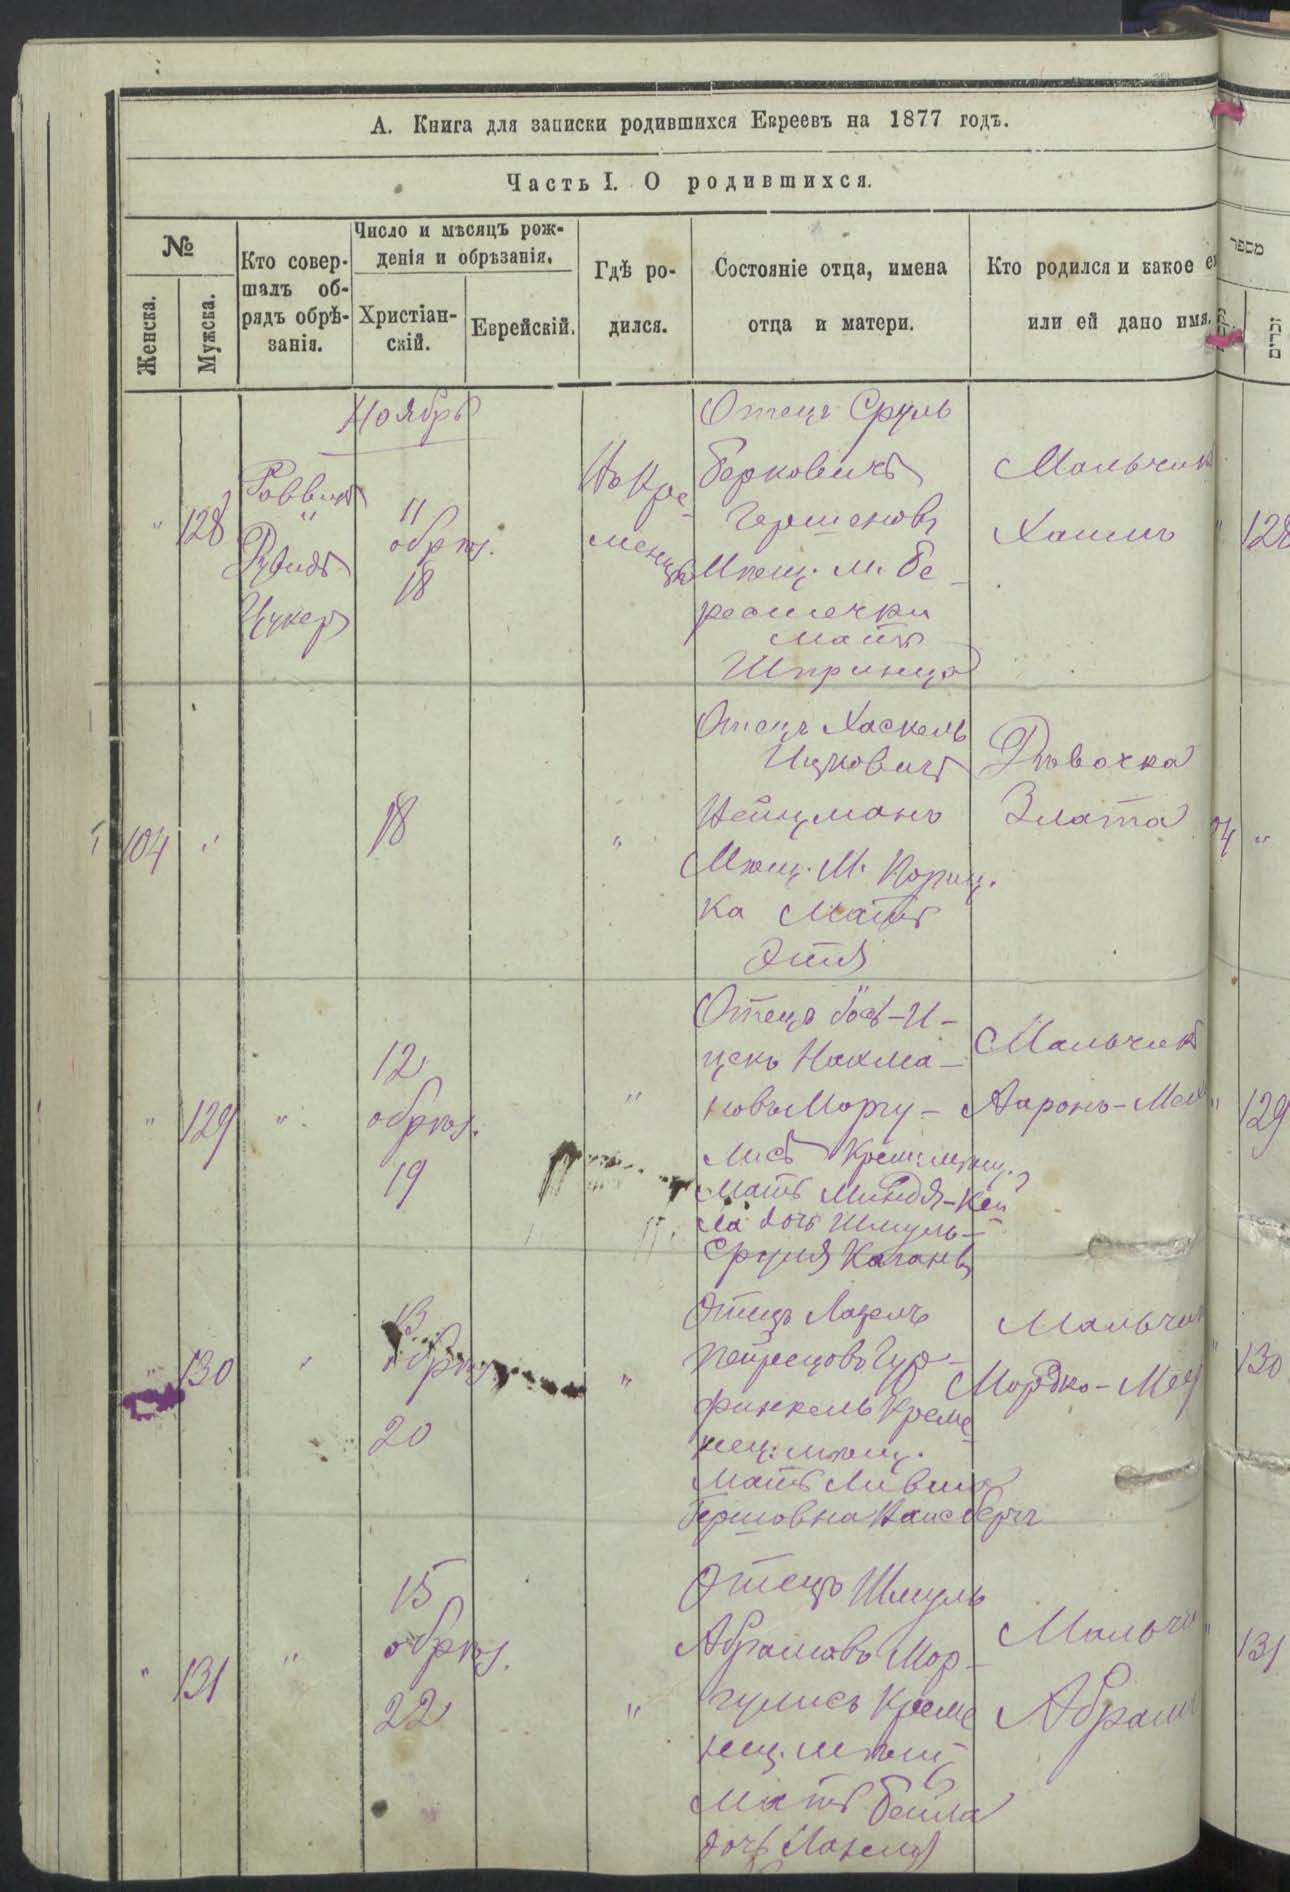 А. Книга для записки родившихся Евреевъ на 1877 годъ.
Часть I. О родившихся.
№
Женска.
Мужска.
Кто совер-
шалъ об-
рядъ обрѣ-
занія.
Число и мѣсяцъ рож-
денія и обрѣзанія.
Христіан-
скій.
Еврейскій.
Гдѣ ро-
дился.
Состояніе отца, имена
отца и матери.
Кто родился и какое е
или ей дано имя.
מספר
זכרים
Ноябрь
"
128
Раввинъ
"
Цукеръ
11
обрѣз.
18
Въ Кре-
менцѣ
Отецъ Сруль
Берковичъ
Гершеновъ
Мѣщ. м. Бе-
рестечки
Мать
Шпринца
Мальчик
Хаимъ
"
128
104
"
18
"
Отецъ Хаскель
Ицковичъ
Вейцманъ
Мѣщ. М. Кориц.
ка Мать
Этя
Дѣвочка
Злата
04
"
"
129
"
12
обрѣз.
19
"
Отецъ Іосъ-И-
цекъ Нахма-
новъ Моргу-
лисъ Кременец.
Мать Миндя-Кей
ла дочь Шмуль-
Сруля Каганъ
Мальчикъ
Ааронъ-Ме
"
129
"
130
"
13
обрѣз.
20
"
Отецъ Лазель
Гур-
финкель Креме
нец: мѣщ.
Мать
Гершовна
Мальчи
Мордко-Ме
"
130
"
131
"
15
обрѣз.
22
"
Отецъ Шмуль
Абрамовъ Мор-
гулисъ Креме
нец. мѣщ
Мать Бейла
дочь
Мальчи
Абрам
"
131